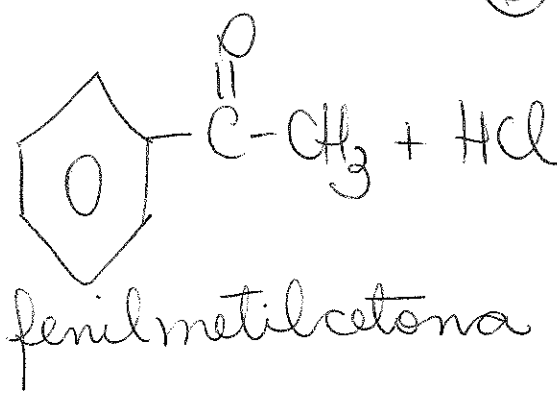 O
C-CH₃ + HCl
fenilmetilcetona